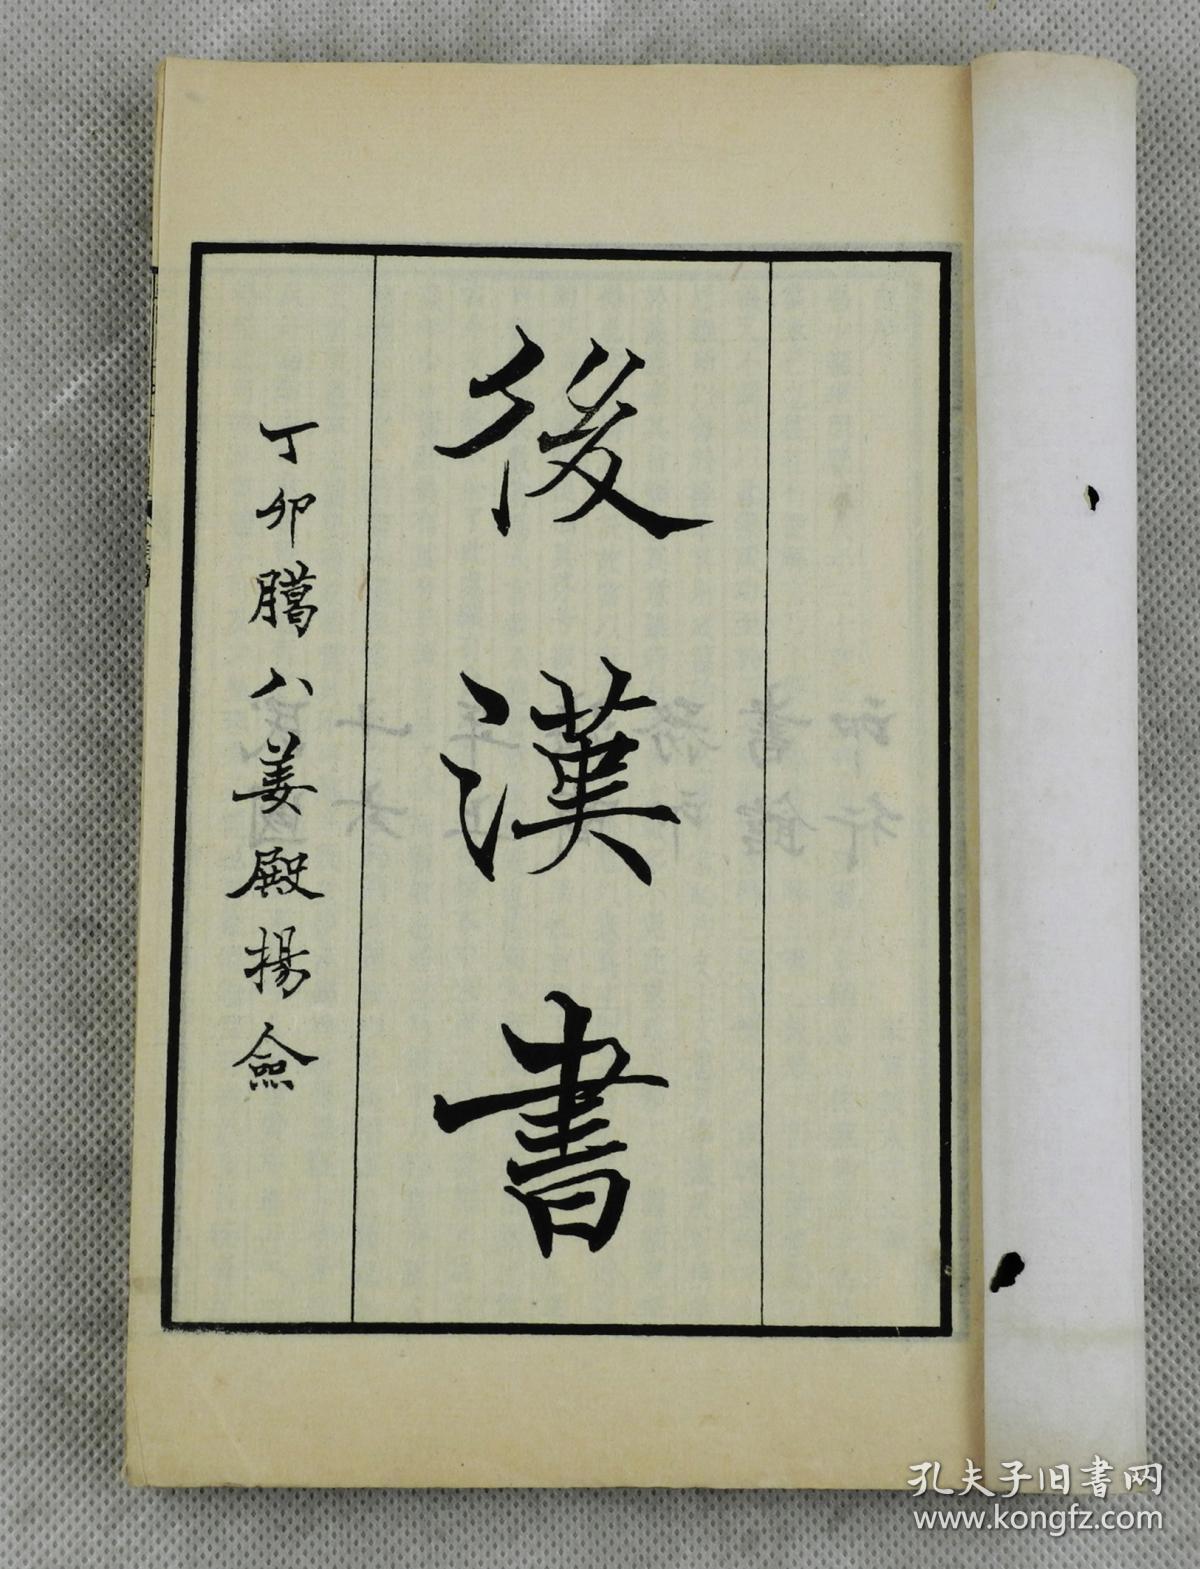 後漢書
丁卯臈八姜殿揚僉
孔夫子旧書网
www.kongfz.com